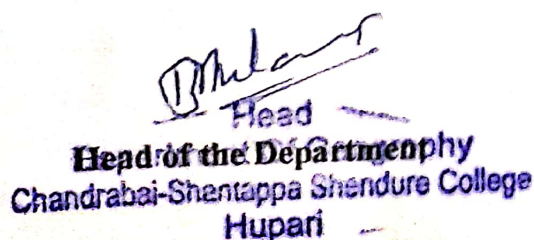 Head
Head of the Department
Chandrabai-Shantappa Shendure College
Hupari